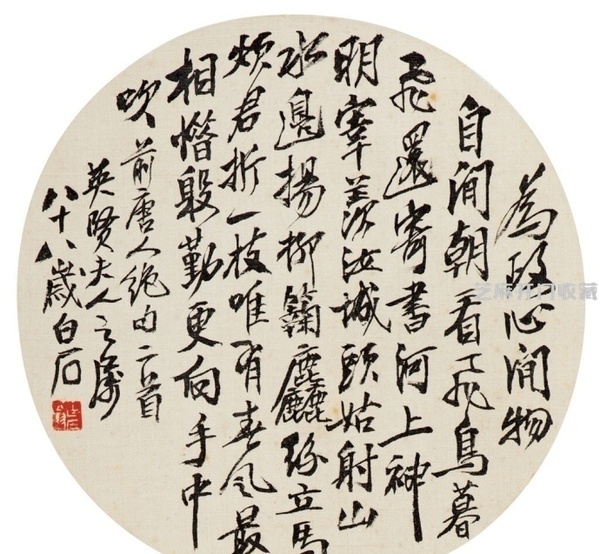 為政心閒物
自閒朝看飛鳥暮
飛還寄書河上神
明宰羨汝城頭姑射山
水邊揚柳麴塵絲立馬
煩君折一枝唯有春風最
相惜殷勤更向手中
吹 前唐人絕句二首
英賢夫人之屬
八十八歲白石
芝麻开门收藏